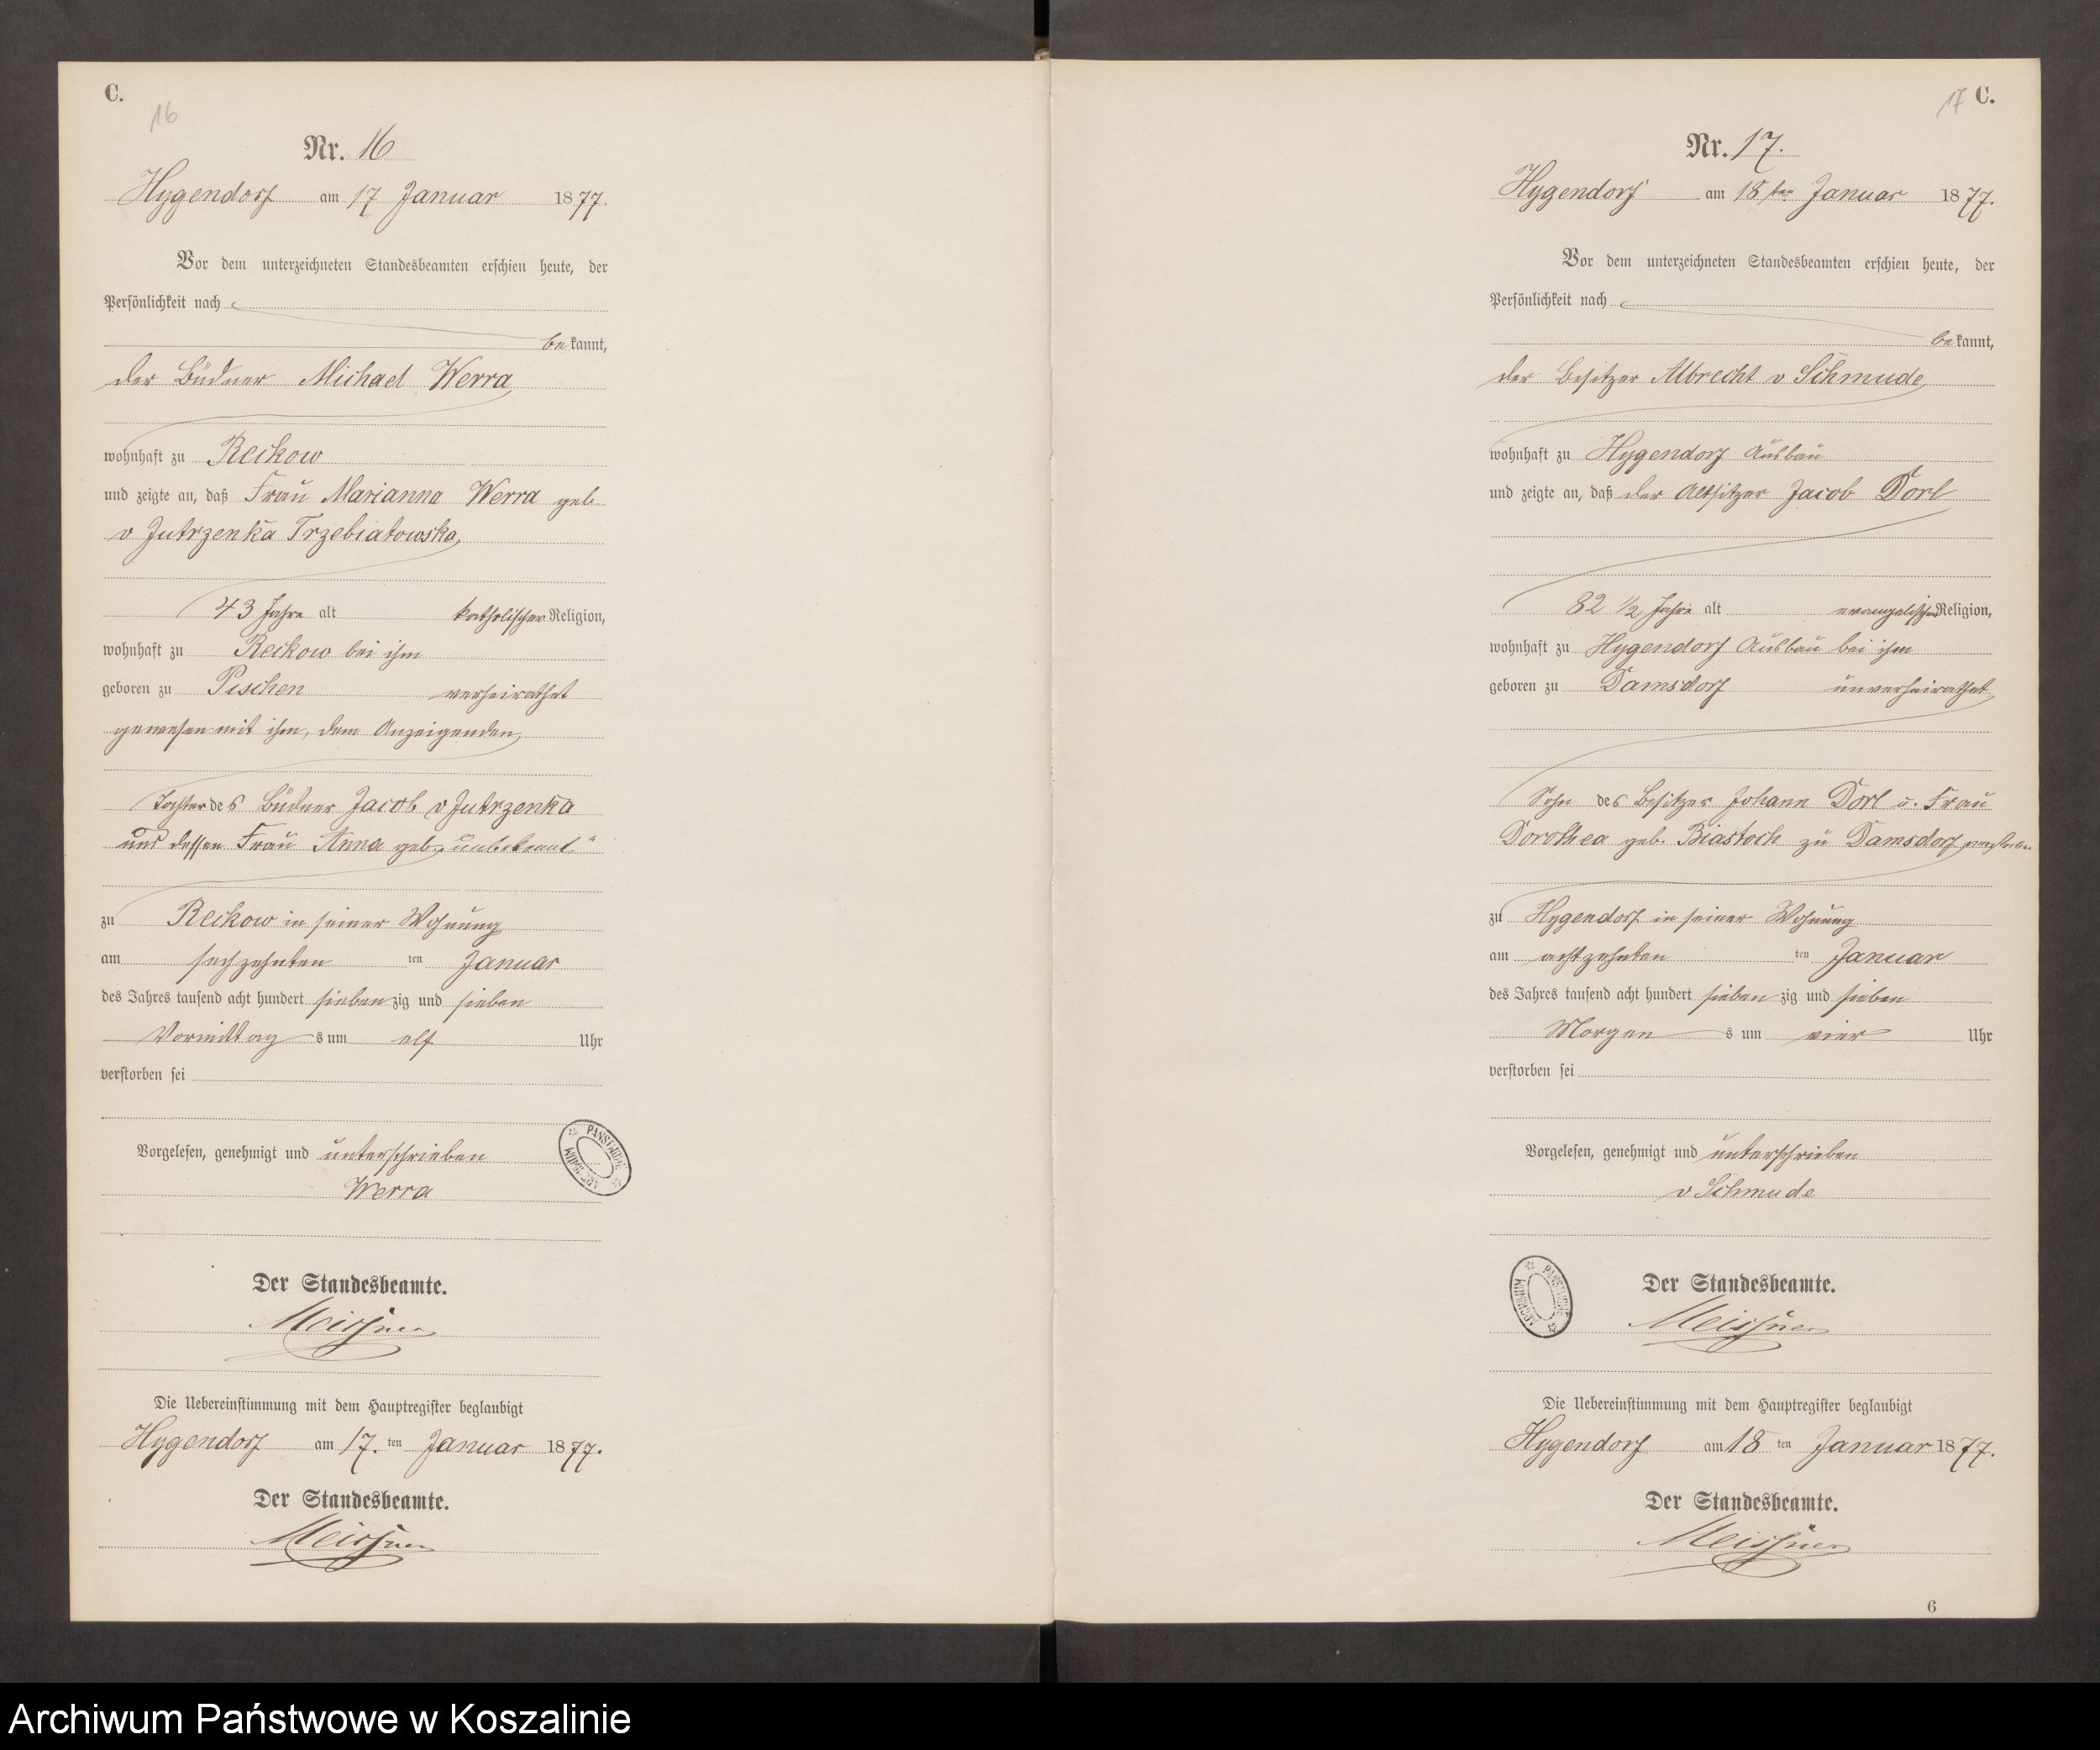 C.
16
Nr. 16
Hygendorf am 17 Januar 1877.
Vor dem unterzeichneten Standesbeamten erschien heute, der
Persönlichkeit nach
bekannt,
der Büdner Michael Werra
wohnhaft zu Reckow
und zeigte an, daß Frau Marianna Werra geb
v Jutrzenka Trzebiatowska,
43 Jahre alt katholischer Religion,
wohnhaft zu Reckow bei ihm
geboren zu Pischen verheirathet
gewesen mit ihm, dem Anzeigenden,
Tochter des Büdner Jacob v Jutrzenka
und dessen Frau Anna geb. „unbekannt“
zu Reckow in seiner Wohnung
am sechzehnten ten Januar
des Jahres tausend acht hundert siebenzig und sieben
Vormittags um elf Uhr
verstorben sei
Vorgelesen, genehmigt und unterschrieben
Werra
Der Standesbeamte.
Meissner
Die Uebereinstimmung mit dem Hauptregister beglaubigt
Hygendorf am 17. ten Januar 1877.
Der Standesbeamte.
Meissner
17 C.
Nr. 17.
Hygendorf am 18ten Januar 1877.
Vor dem unterzeichneten Standesbeamten erschien heute, der
Persönlichkeit nach
bekannt,
der Besitzer Albrecht v Schmude,
wohnhaft zu Hygendorf Ausbau
und zeigte an, daß der Altsitzer Jacob Dorl
82 1/2 Jahre alt evangelischer Religion,
wohnhaft zu Hygendorf Ausbau bei ihm
geboren zu Damsdorf unverheirathet,
Sohn des Besitzer Johann Dorl u. Frau
Dorothea geb. Biastoch zu Damsdorf verstorben
zu Hygendorf in seiner Wohnung
am achtzehnten ten Januar
des Jahres tausend acht hundert siebenzig und sieben
Morgens um vier Uhr
verstorben sei
Vorgelesen, genehmigt und unterschrieben
v Schmude
Der Standesbeamte.
Meissner
Die Uebereinstimmung mit dem Hauptregister beglaubigt
Hygendorf am 18 ten Januar 1877.
Der Standesbeamte.
Meissner
6
Archiwum Państwowe w Koszalinie